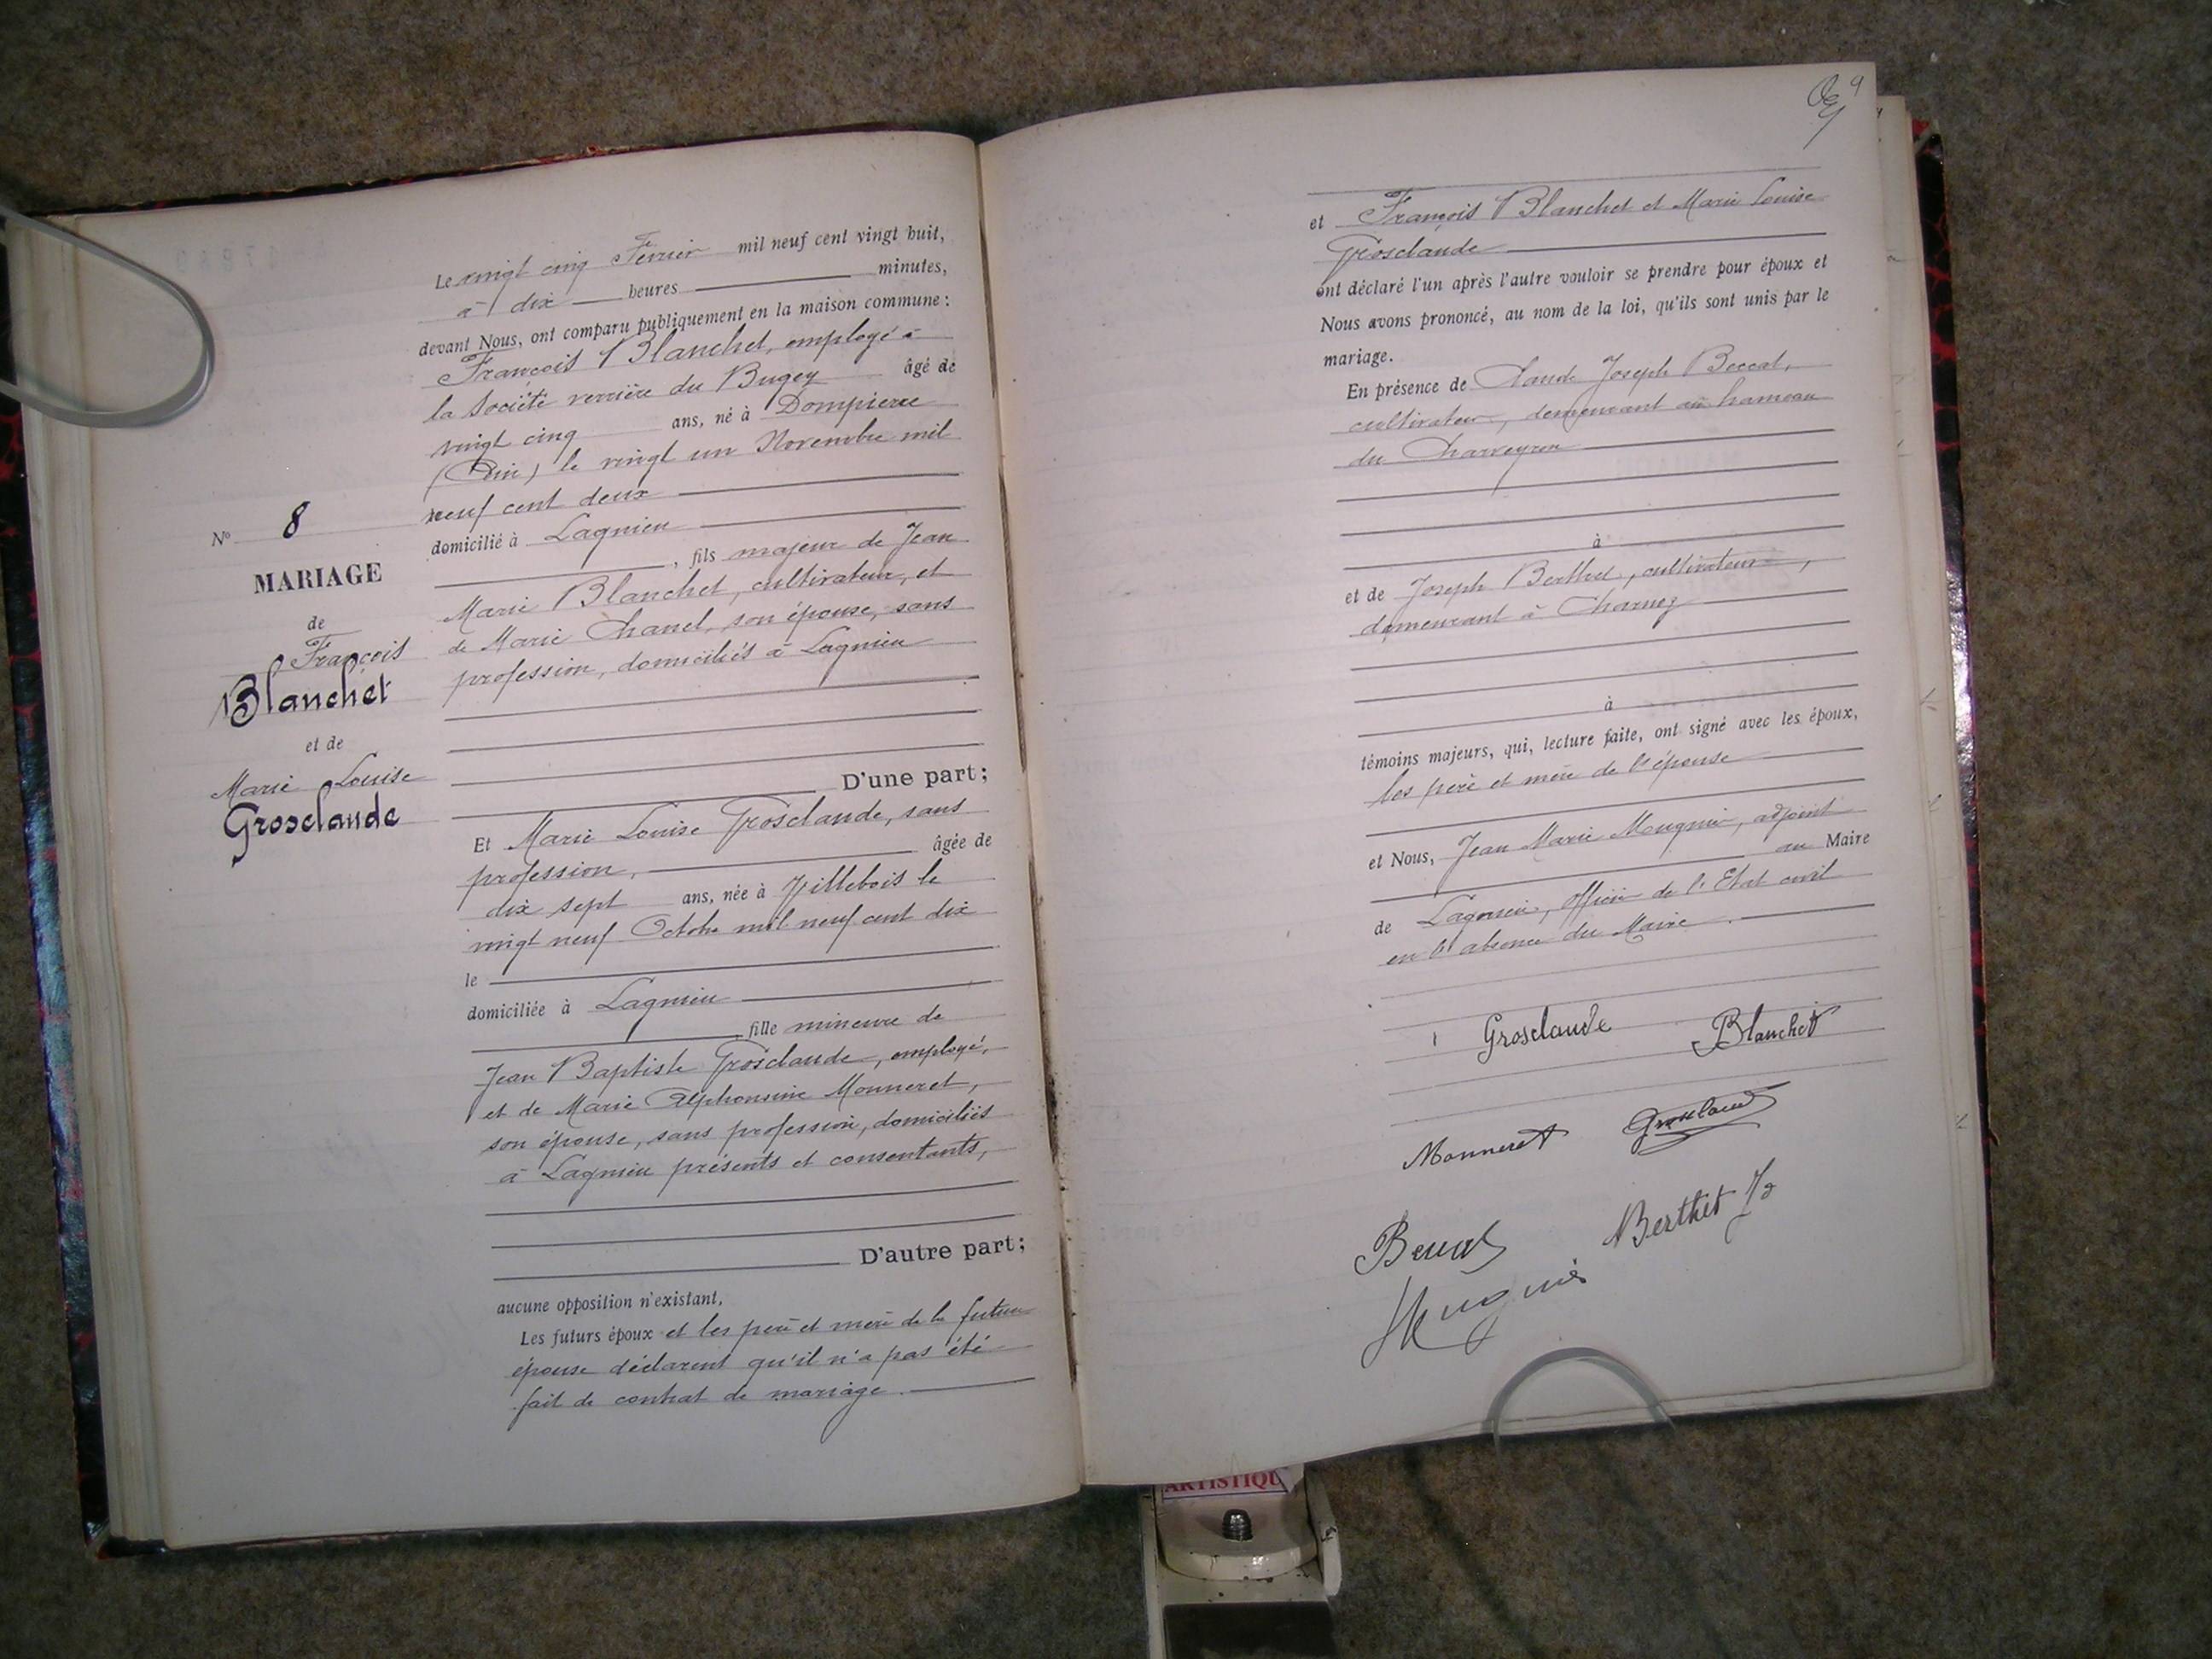 Nº 8
MARIAGE
de
François
Blanchet
et de
Marie Louise
Grosclaude
Le vingt cinq Février mil neuf cent vingt huit,
à dix heures minutes,
devant Nous, ont comparu publiquement en la maison commune :
François Blanchet, employé à
la Société verrière du Bugey âgé de
vingt cinq ans, né à Dompierre
(Ain) le vingt un Novembre mil
neuf cent deux
domicilié à Lagnieu
, fils majeur de Jean
Marie Blanchet, cultivateur, et
de Marie Chanel, son épouse, sans
profession, domiciliés à Lagnieu
D'une part;
Et Marie Louise Grosclaude, sans
profession, âgée de
dix sept ans, née à Villebois le
vingt neuf Octobre mil neuf cent dix
le
domiciliée à Lagnieu
fille mineure de
Jean Baptiste Grosclaude, employé,
et de Marie Alphonsine Monneret,
son épouse, sans profession, domiciliés
à Lagnieu présents et consentants,
D'autre part;
aucune opposition n'existant,
Les futurs époux et les père et mère de la future
épouse déclarent qu'il n'a pas été
fait de contrat de mariage.
9
et François Blanchet et Marie Louise
Grosclaude
ont déclaré l'un après l'autre vouloir se prendre pour époux et
Nous avons prononcé, au nom de la loi, qu'ils sont unis par le
mariage.
En présence de Claude Joseph Beccat,
cultivateur, demeurant au hameau
du Charveyron
à
et de Joseph Berthet, cultivateur,
demeurant à Charnoz
à
témoins majeurs, qui, lecture faite, ont signé avec les époux,
les père et mère de l'épouse
et Nous, Jean Marie Mugnier, adjoint
au Maire
de Lagnieu, officier de l'Etat civil
en l'absence du Maire.
Grosclaude Blanchet
Monneret Grosclaude
Beccat Berthet
Mugnier
ARTISTIQU